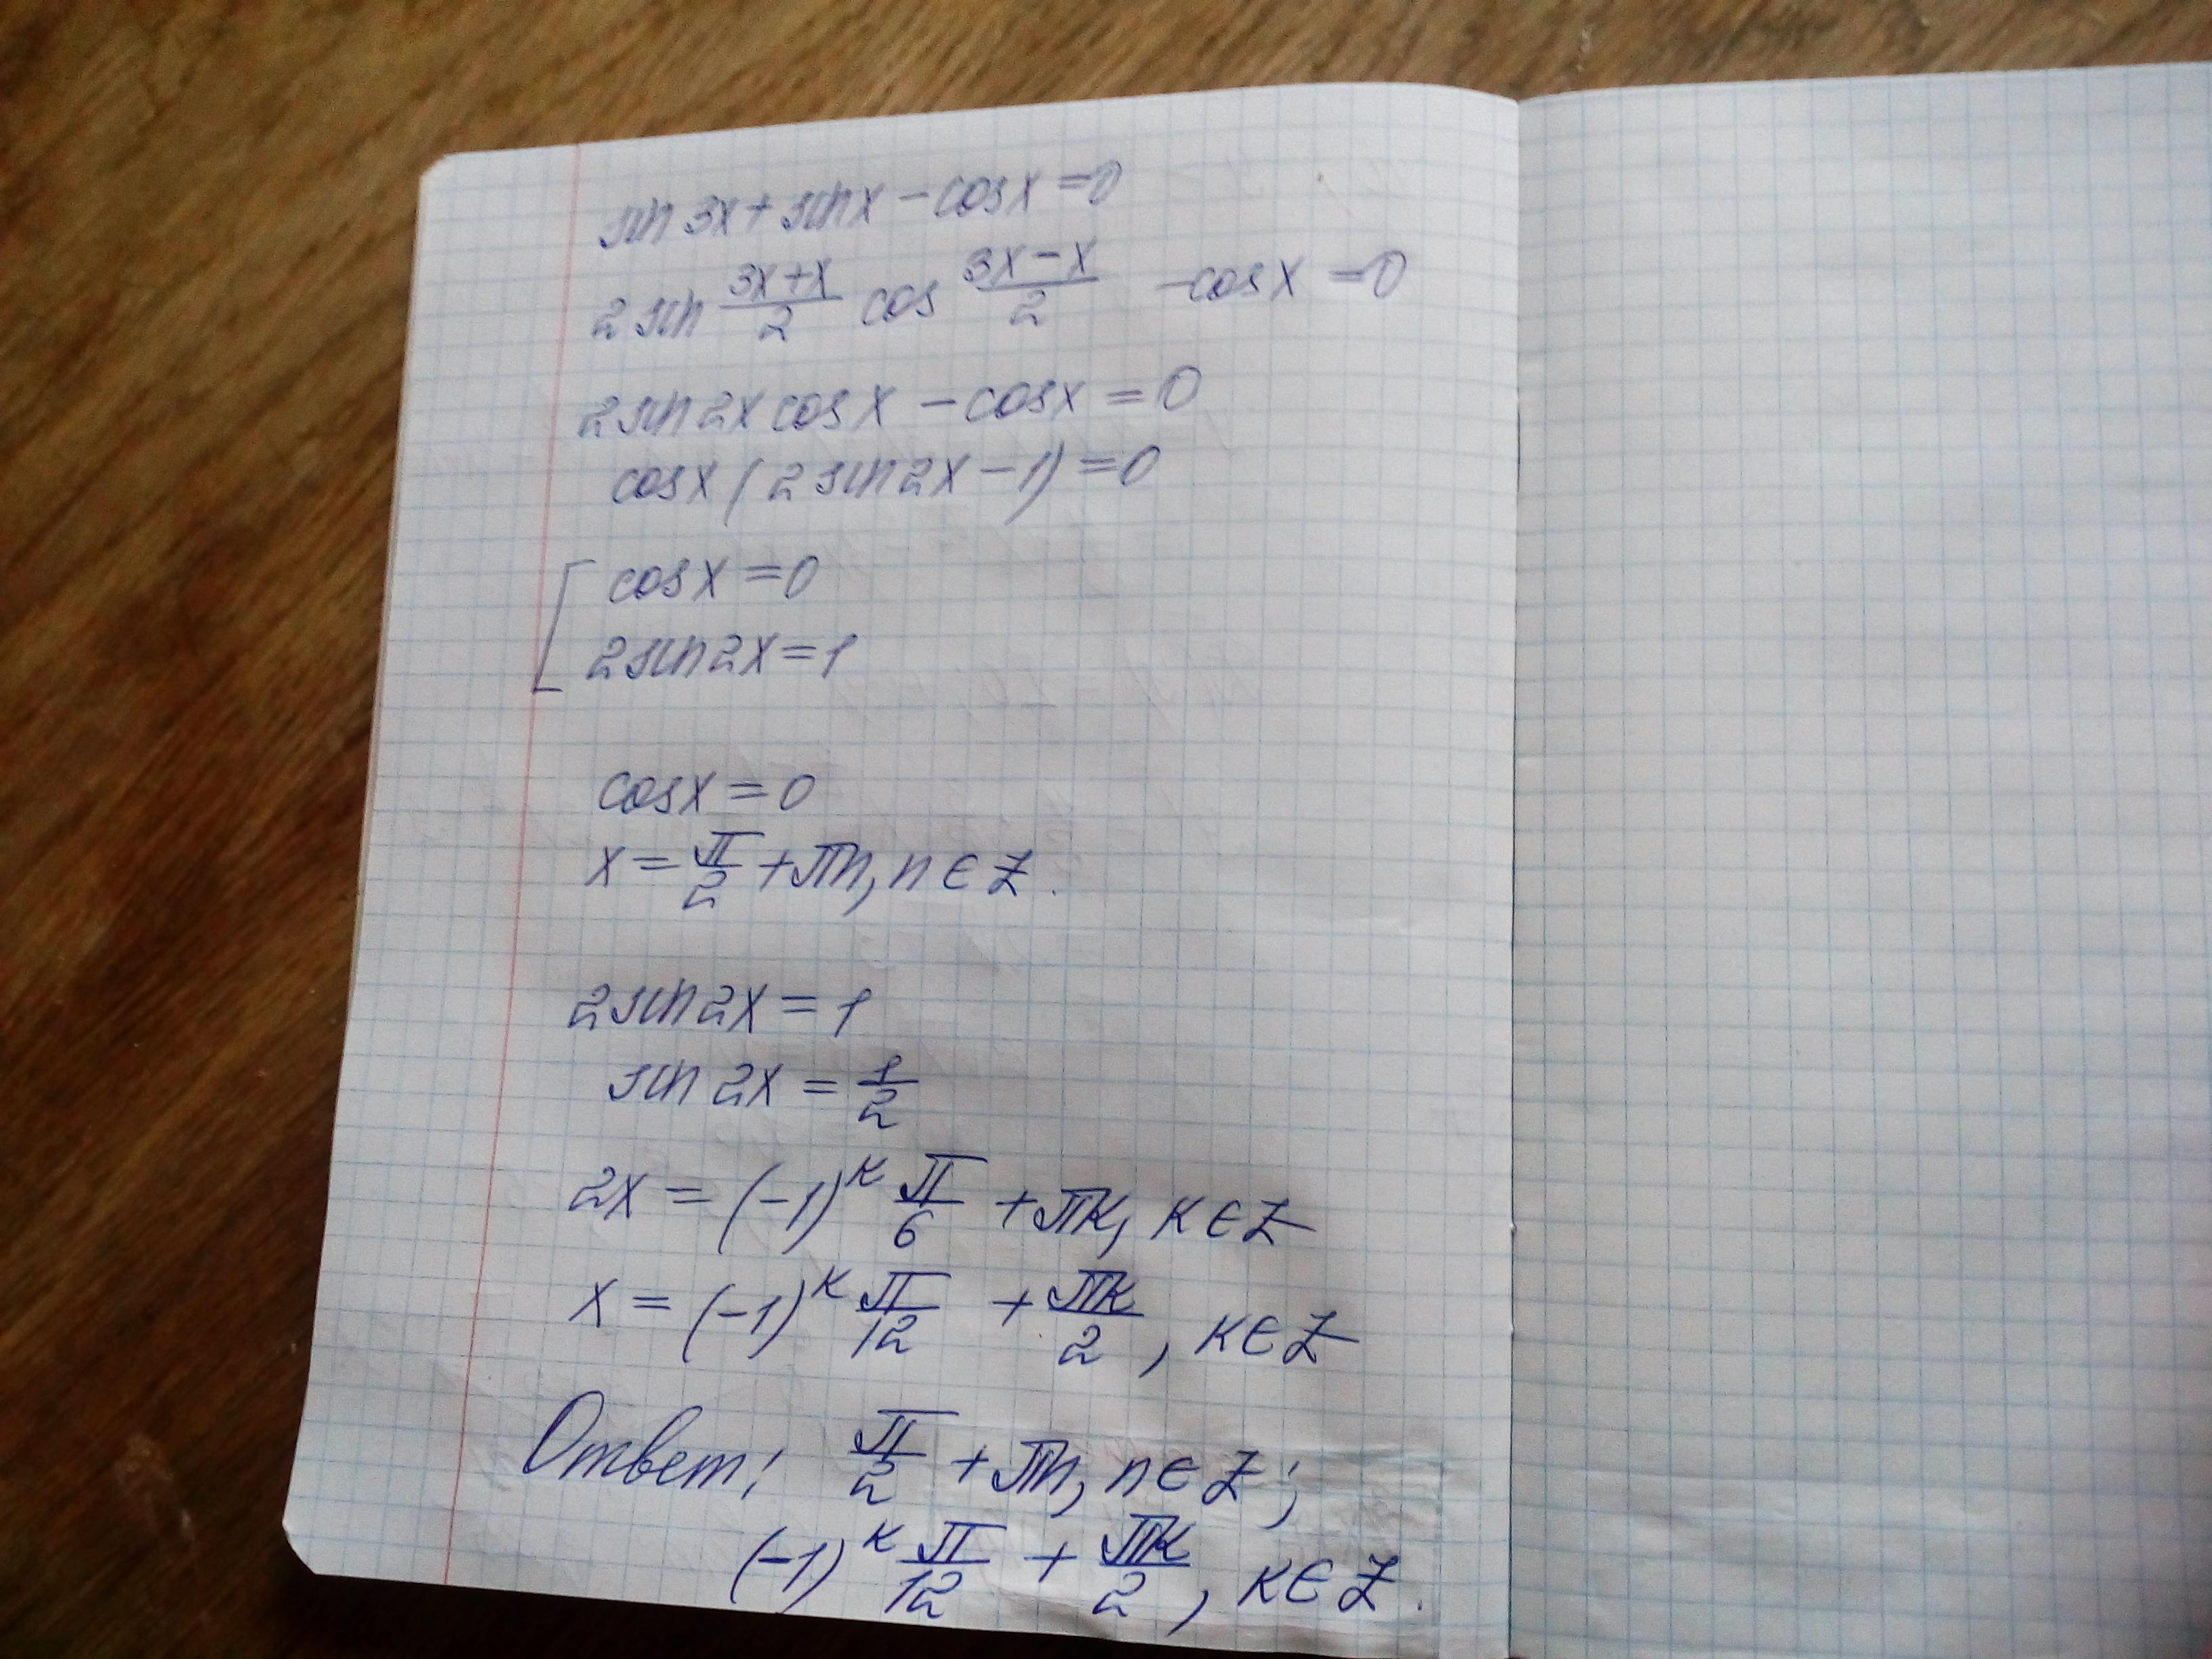 sin 3x + sin x − cos x = 0
2 sin (3x + x)/2 cos (3x − x)/2 − cos x = 0
2 sin 2x cos x − cos x = 0
cos x (2 sin 2x − 1) = 0
[ cos x = 0
2 sin 2x = 1
cos x = 0
x = π/2 + πn, n ∈ Z.
2 sin 2x = 1
sin 2x = 1/2
2x = (−1)^к π/6 + πк, к ∈ Z
x = (−1)^к π/12 + πк/2, к ∈ Z
Ответ: π/2 + πn, n ∈ Z;
(−1)^к π/12 + πк/2, к ∈ Z.